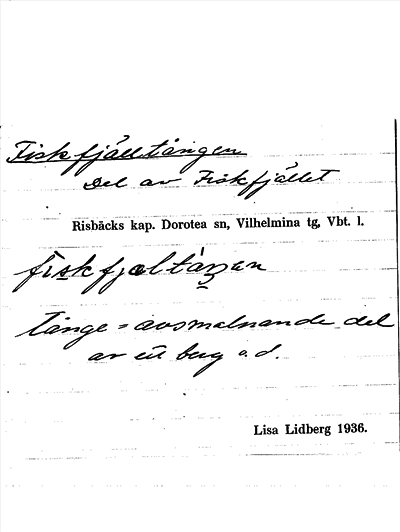 Fiskfjälltången
Del av Fiskfjället
Risbäcks kap. Dorotea sn, Vilhelmina tg, Vbt. l.
Tånge = avsmalnande del
av ett berg o.d.
Lisa Lidberg 1936.